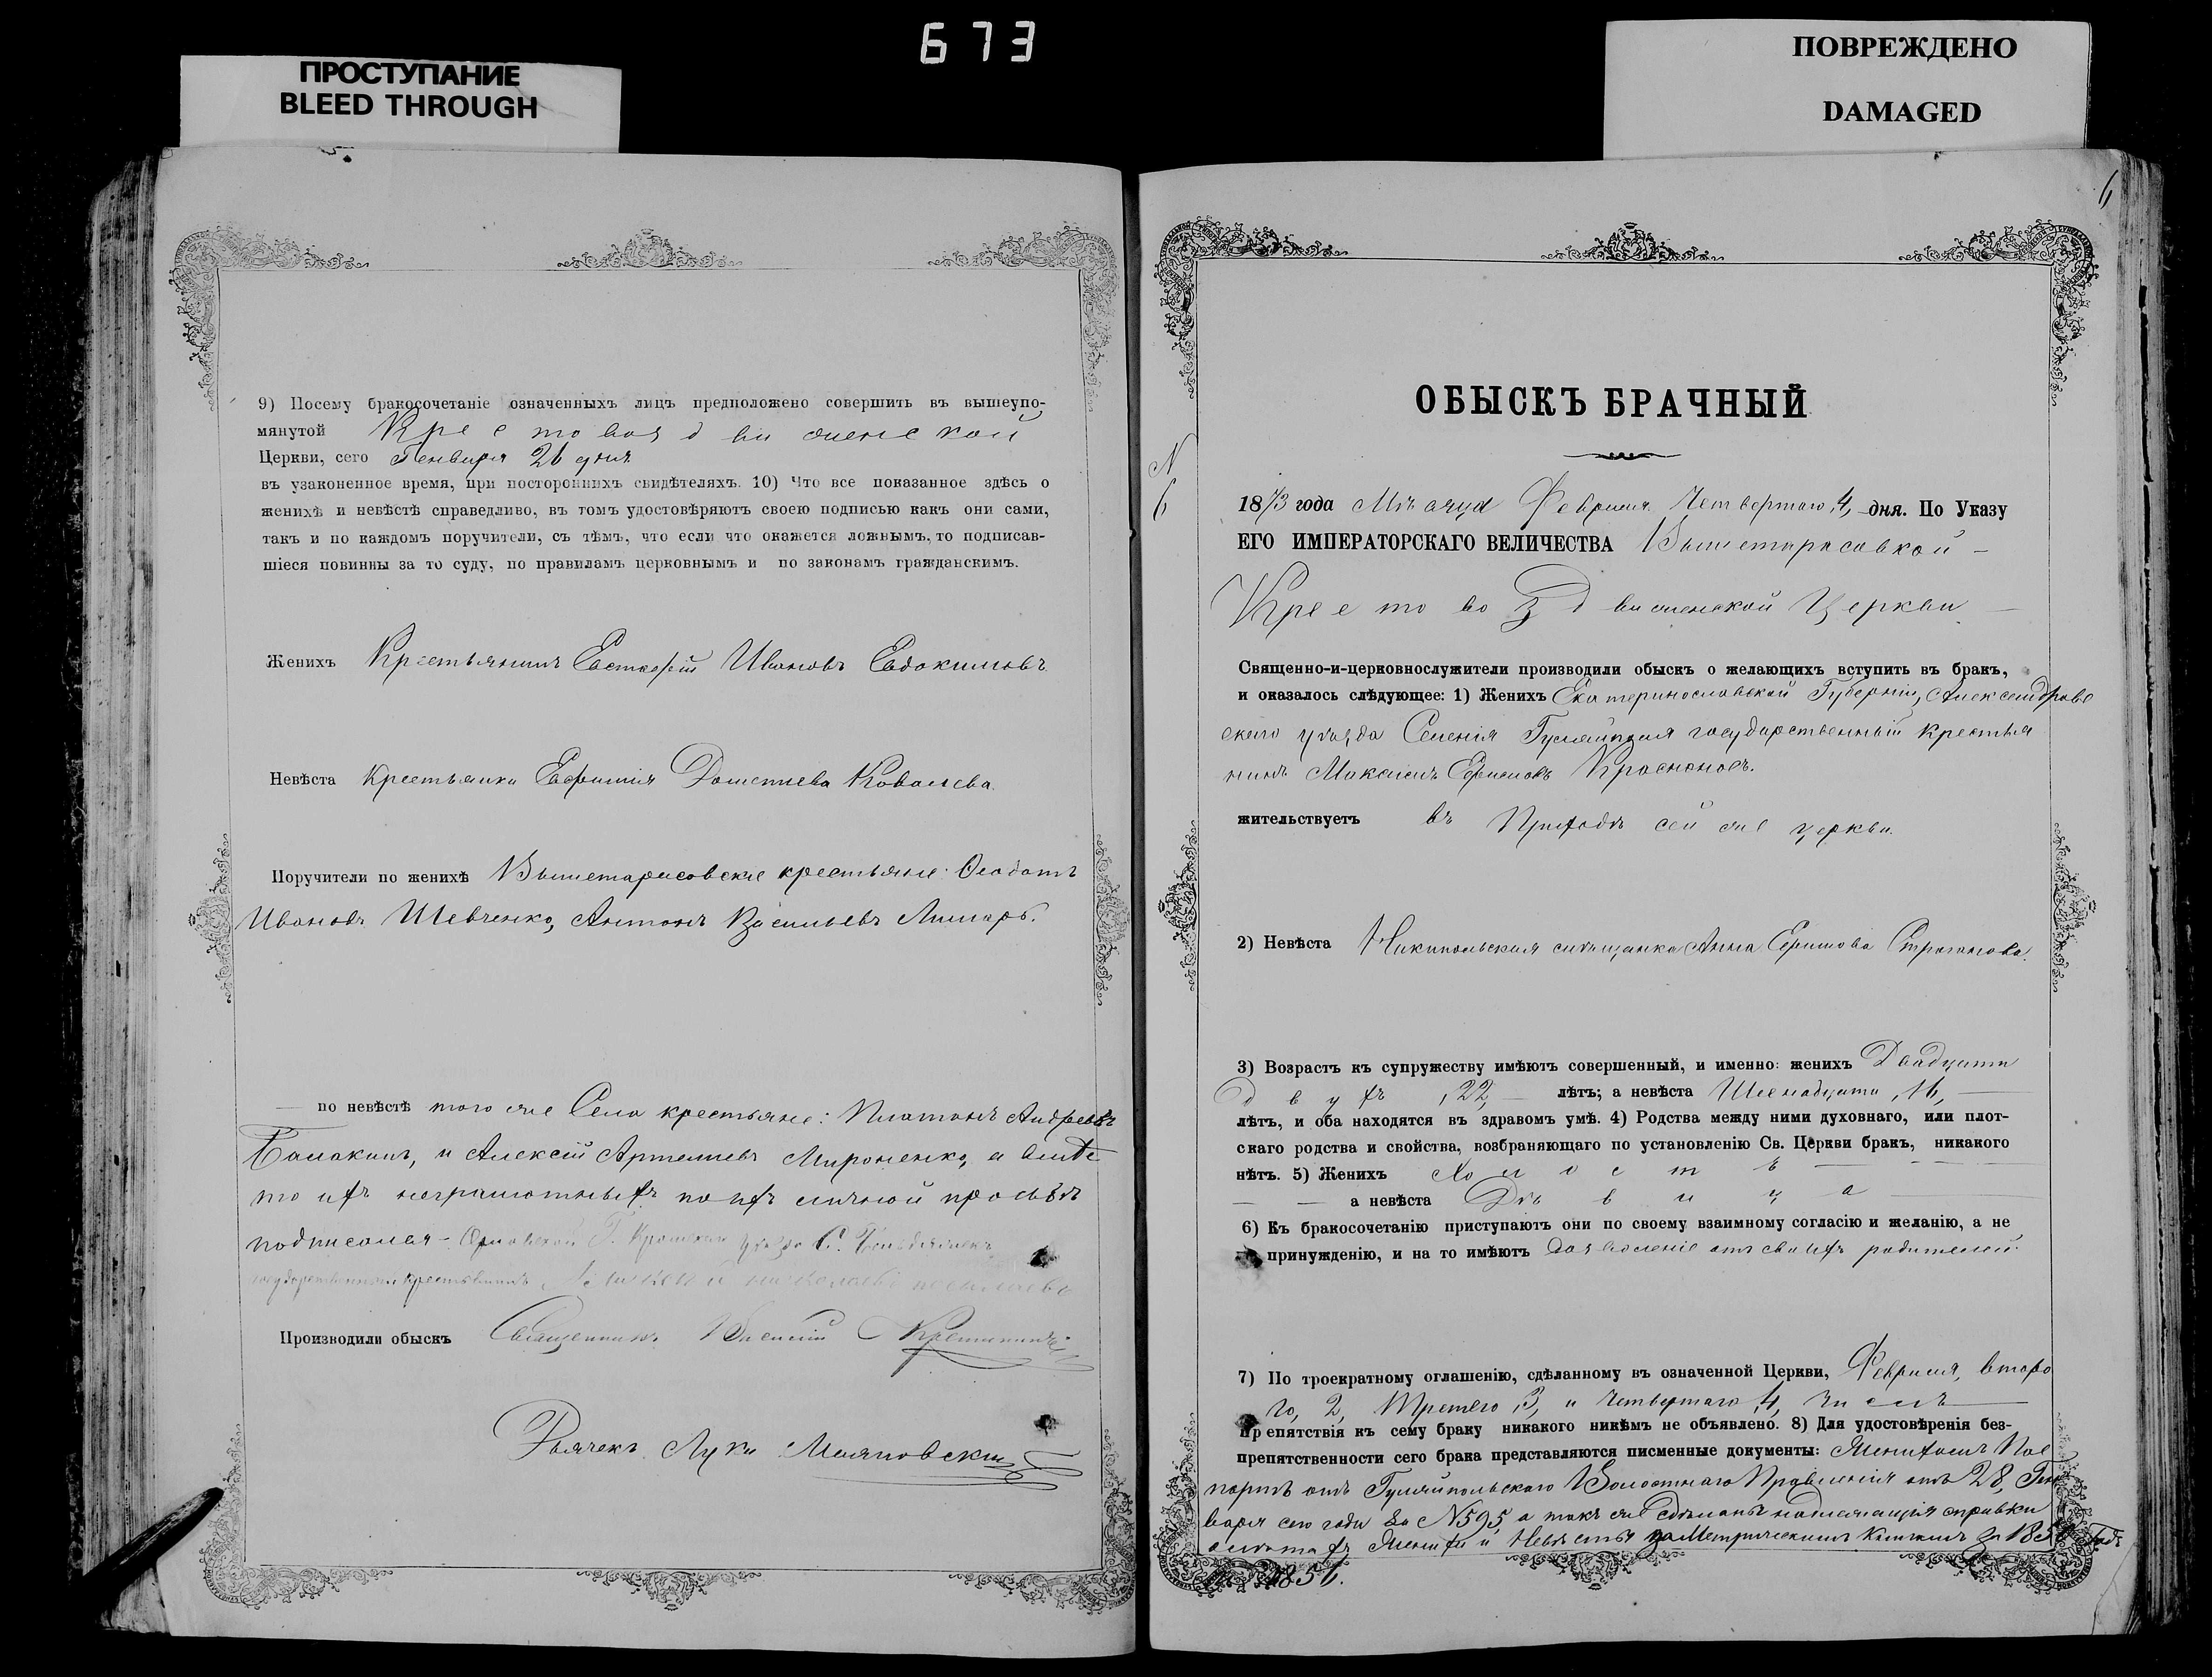 673
ПРОСТУПАНИЕ
BLEED THROUGH
ПОВРЕЖДЕНО
DAMAGED
9) Посему бракосочетаніе означенныхъ лицъ предположено совершить въ вышеупо-
мянутой Крестовоздвиженской
Церкви, сего Генваря 26 дня
въ узаконенное время, при постороннихъ свидѣтеляхъ. 10) Что все показанное здѣсь о
женихѣ и невѣстѣ справедливо, въ томъ удостовѣряютъ своею подписью какъ они сами,
такъ и по каждомъ поручители, съ тѣмъ, что если что окажется ложнымъ, то подписав-
шіеся повинны за то суду, по правиламъ церковнымъ и по законамъ гражданскимъ.
Женихъ Крестьянинъ Евстафій Ивановъ Евдокимовъ
Невѣста Крестьянка Евфимія Ковалева.
Поручители по женихѣ Вышетарасовскіе крестьяне: Феодотъ
Ивановъ Шевченко, Антонъ Васильевъ Лимарь.
по невѣстѣ того же Села крестьяне: Платонъ Андреевъ
и Алексій Артемьевъ Мироненко, а вмѣс
то ихъ неграмотныхъ по ихъ личной просьбѣ
подписался - Орловской Г. уѣзда С.
государственный крестьянинъ
Производили обыскъ Священникъ Василій
Дьячекъ Лука
6
ОБЫСКЪ БРАЧНЫЙ
N
6
1873 года Мѣсяца Февраля Четвертаго, 4, дня. По Указу
ЕГО ИМПЕРАТОРСКАГО ВЕЛИЧЕСТВА Вышетарасовкой -
Крестовоздвиженской Церкви
Священно-и-церковнослужители производили обыскъ о желающихъ вступить въ бракъ,
и оказалось слѣдующее: 1) Женихъ Екатеринославской Губерніи, Александровс
скаго уѣзда Селенія Гуляйполя государственный крестья
нинъ Максимъ Ефимовъ Красноносъ.
жительствуетъ въ Приходѣ сей же церкви.
2) Невѣста Никипольская мѣщанка Анна Ефимова Строганова.
3) Возрастъ къ супружеству имѣютъ совершенный, и именно: женихъ Двадцати
двухъ, 22, лѣтъ; а невѣста Шеснадцати, 16,
лѣтъ, и оба находятся въ здравомъ умѣ. 4) Родства между ними духовнаго, или плот-
скаго родства и свойства, возбраняющаго по установленію Св. Церкви бракъ, никакого
нѣтъ. 5) Женихъ Холостъ
а невѣста Дѣвица
6) Къ бракосочетанію приступаютъ они по своему взаимному согласію и желанію, а не
принужденію, и на то имѣютъ дозволеніе отъ своихъ родителей.
7) По троекратному оглашенію, сдѣланному въ означенной Церкви, Февраля, второ
го, 2, Третьего 3, и четвертаго 4, числъ
препятствія къ сему браку никакого никѣмъ не объявлено. 8) Для удостовѣренія без-
препятственности сего брака представляются писменные документы: Женихомъ Пас
портъ отъ Гуляйпольскаго Волостнаго Правленія отъ 28, Ген
варя сего года за N 595, а такъ же сдѣланы надлежащія справки
о лѣтахъ Жениха и Невѣсты по Метрическимъ книгамъ за
1856.